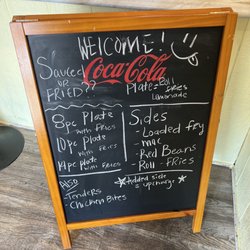 WELCOME!
Coca-Cola
Sauced
OR ??
FRIED
Plate - Roll
FRIES
Lemonade
8pc Plate
with Fries
10pc Plate
with Fries
14pc Plate
with Fries
Also
- Tenders
- Chicken Bites
Sides
- Loaded fry
- mac
- Red Beans
- Roll - FRIES
Added side
= upcharge